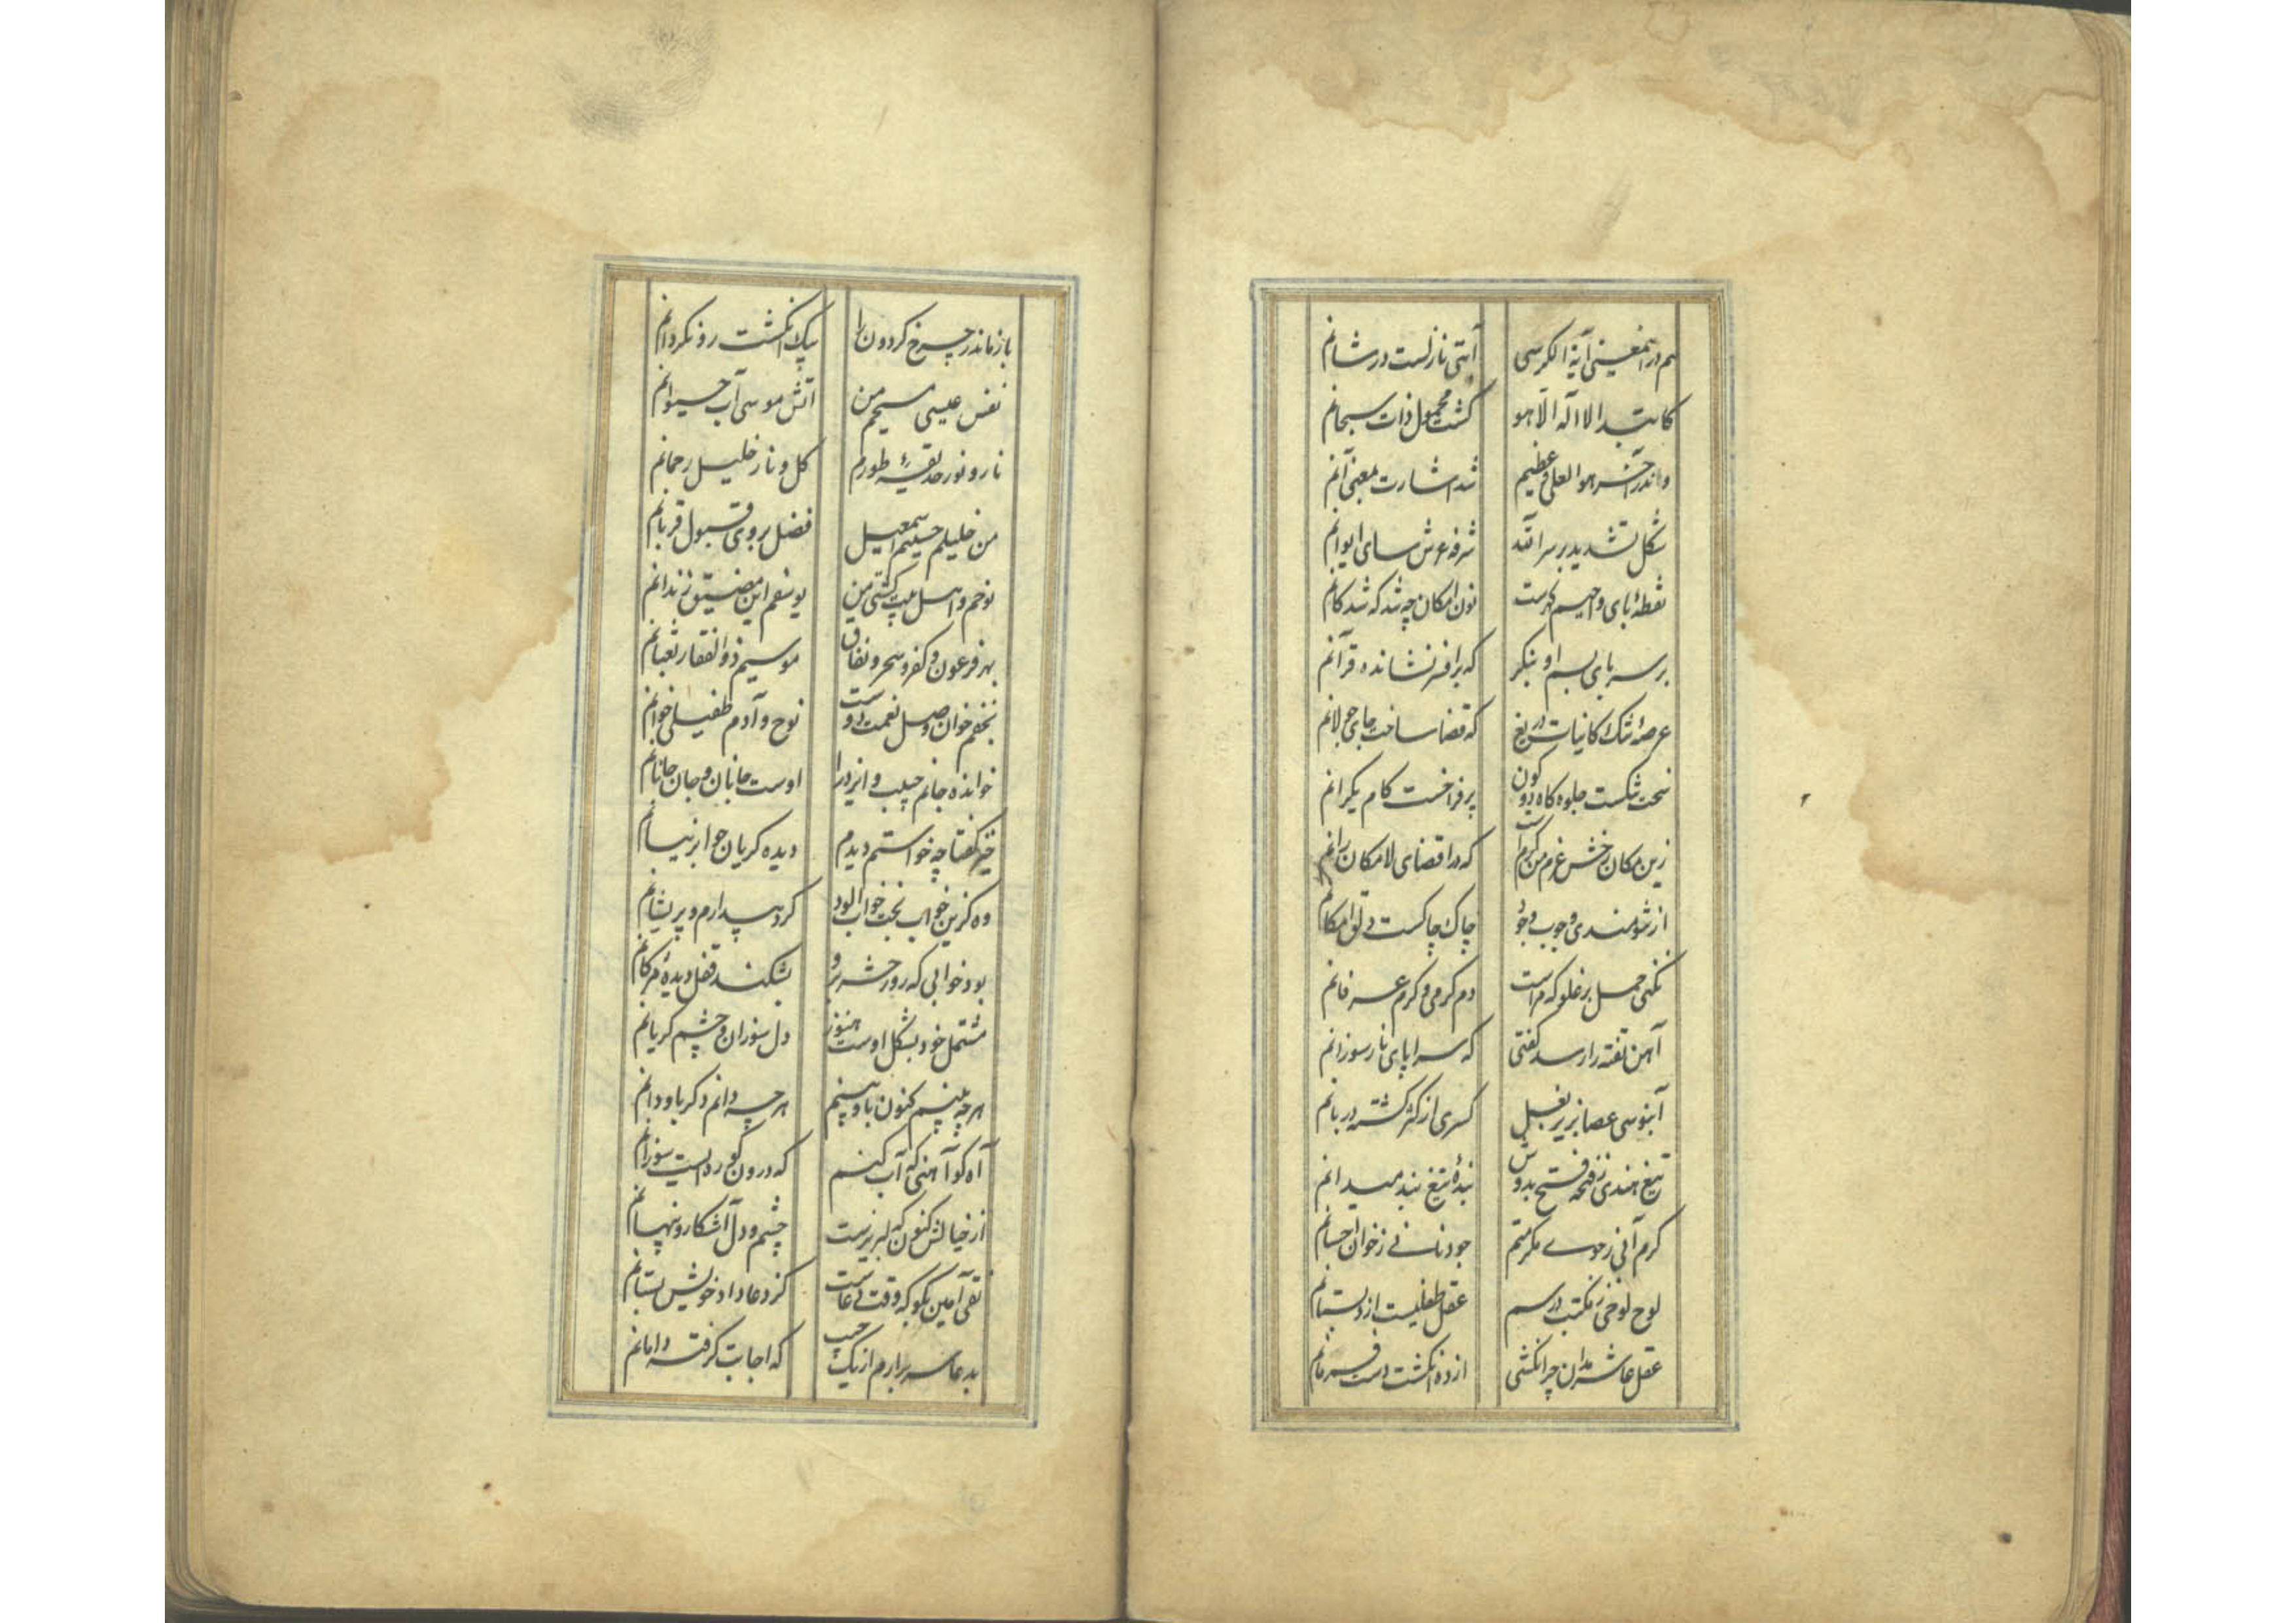 هم در اینمعنی آیة الکرسی آیتی نازلست در شانم
کابتدا لا اله الا هو گشت محمول ذات سبحانم
واندر آخر هو العلی عظیم شد اشارت بمعنی آنم
شکل تشدید بر سر الله شرفه عرش سای ایوانم
نقطهٔ بای واجبم نون امکان چه شد که شد کانم
بر سر بای بسم او بنگر که بر افسر نشانده قرآنم
عرصهٔ تنگ کانیات دریغ که قضا ساخت جای جولانم
سخت تنگست جلوه گاه دو کون پر فراخست کام یکرانم
زین مکان رخش عزم من گرم است که در اقضای لامکان رانم
از تنومندی وجوب وجود چاک چاکست دلق امکانم
نکنی حمل بر غلو که مراست دم گرمی و گرم عرفانم
آهن تفته را رسد گفتی که سراپای نار سوزانم
آبنوسی عصا بزیر بغل کسری از کثر گشته دربانم
تیغ هندی ز فتحه فتح بدوش بندهٔ تیغ بند میدانم
کرم آنی ز جوی مکرمتم جود نانی ز خوان احسانم
لوح لوحی ز مکتب درسم عقل طفلیست از دبستانم
عقل عاشر مدان چرا نکشی از ده انگشت دست فرمانم
باز ماند ز چرخ گردون را یک انگشت رو نگردانم
نفس عیسی مسیحم من آتش موسی آب حیوانم
نار و نور حدیقهٔ طورم گل و نار خلیل رحمانم
من خلیلم حسینم اسمعیل فضل بروی قبول قربانم
نوحم و اهل بیت کشتی من یوسفم این مضیق زندانم
بهر فرعون و کفر و سحر و نفاق موسیم ذوالفقار ثعبانم
نجفم خوان وصل نعمت دوست نوح و آدم طفیلی خوانم
خوانده جانم حبیب و ایزد را اوست جانان و جان جانانم
خیز گفتا چه خواستم دیدم دیده گریان چو ابر نیسانم
وه کزین خواب بخت خواب آلود کرد بیدارم و پریشانم
بود خوابی که روز حشر برو بشکند قفل دیدهٔ مرگانم
مشتمل خود بشکل اوست هنوز دل سوزان و چشم گریانم
هر چه بینم کنون باو بینم هر چه دانم دگر باو دانم
آه کو آهنی که آب کنم که درون کوره ایست سوزانم
از خیالش کنون که لبریزست چشم و دل آشکار و پنهانم
تقی آمین بگو که وقت دعاست کز دعا داد خویش بستانم
بدعا سر برارم از یک جیب که اجابت گرفته دامانم